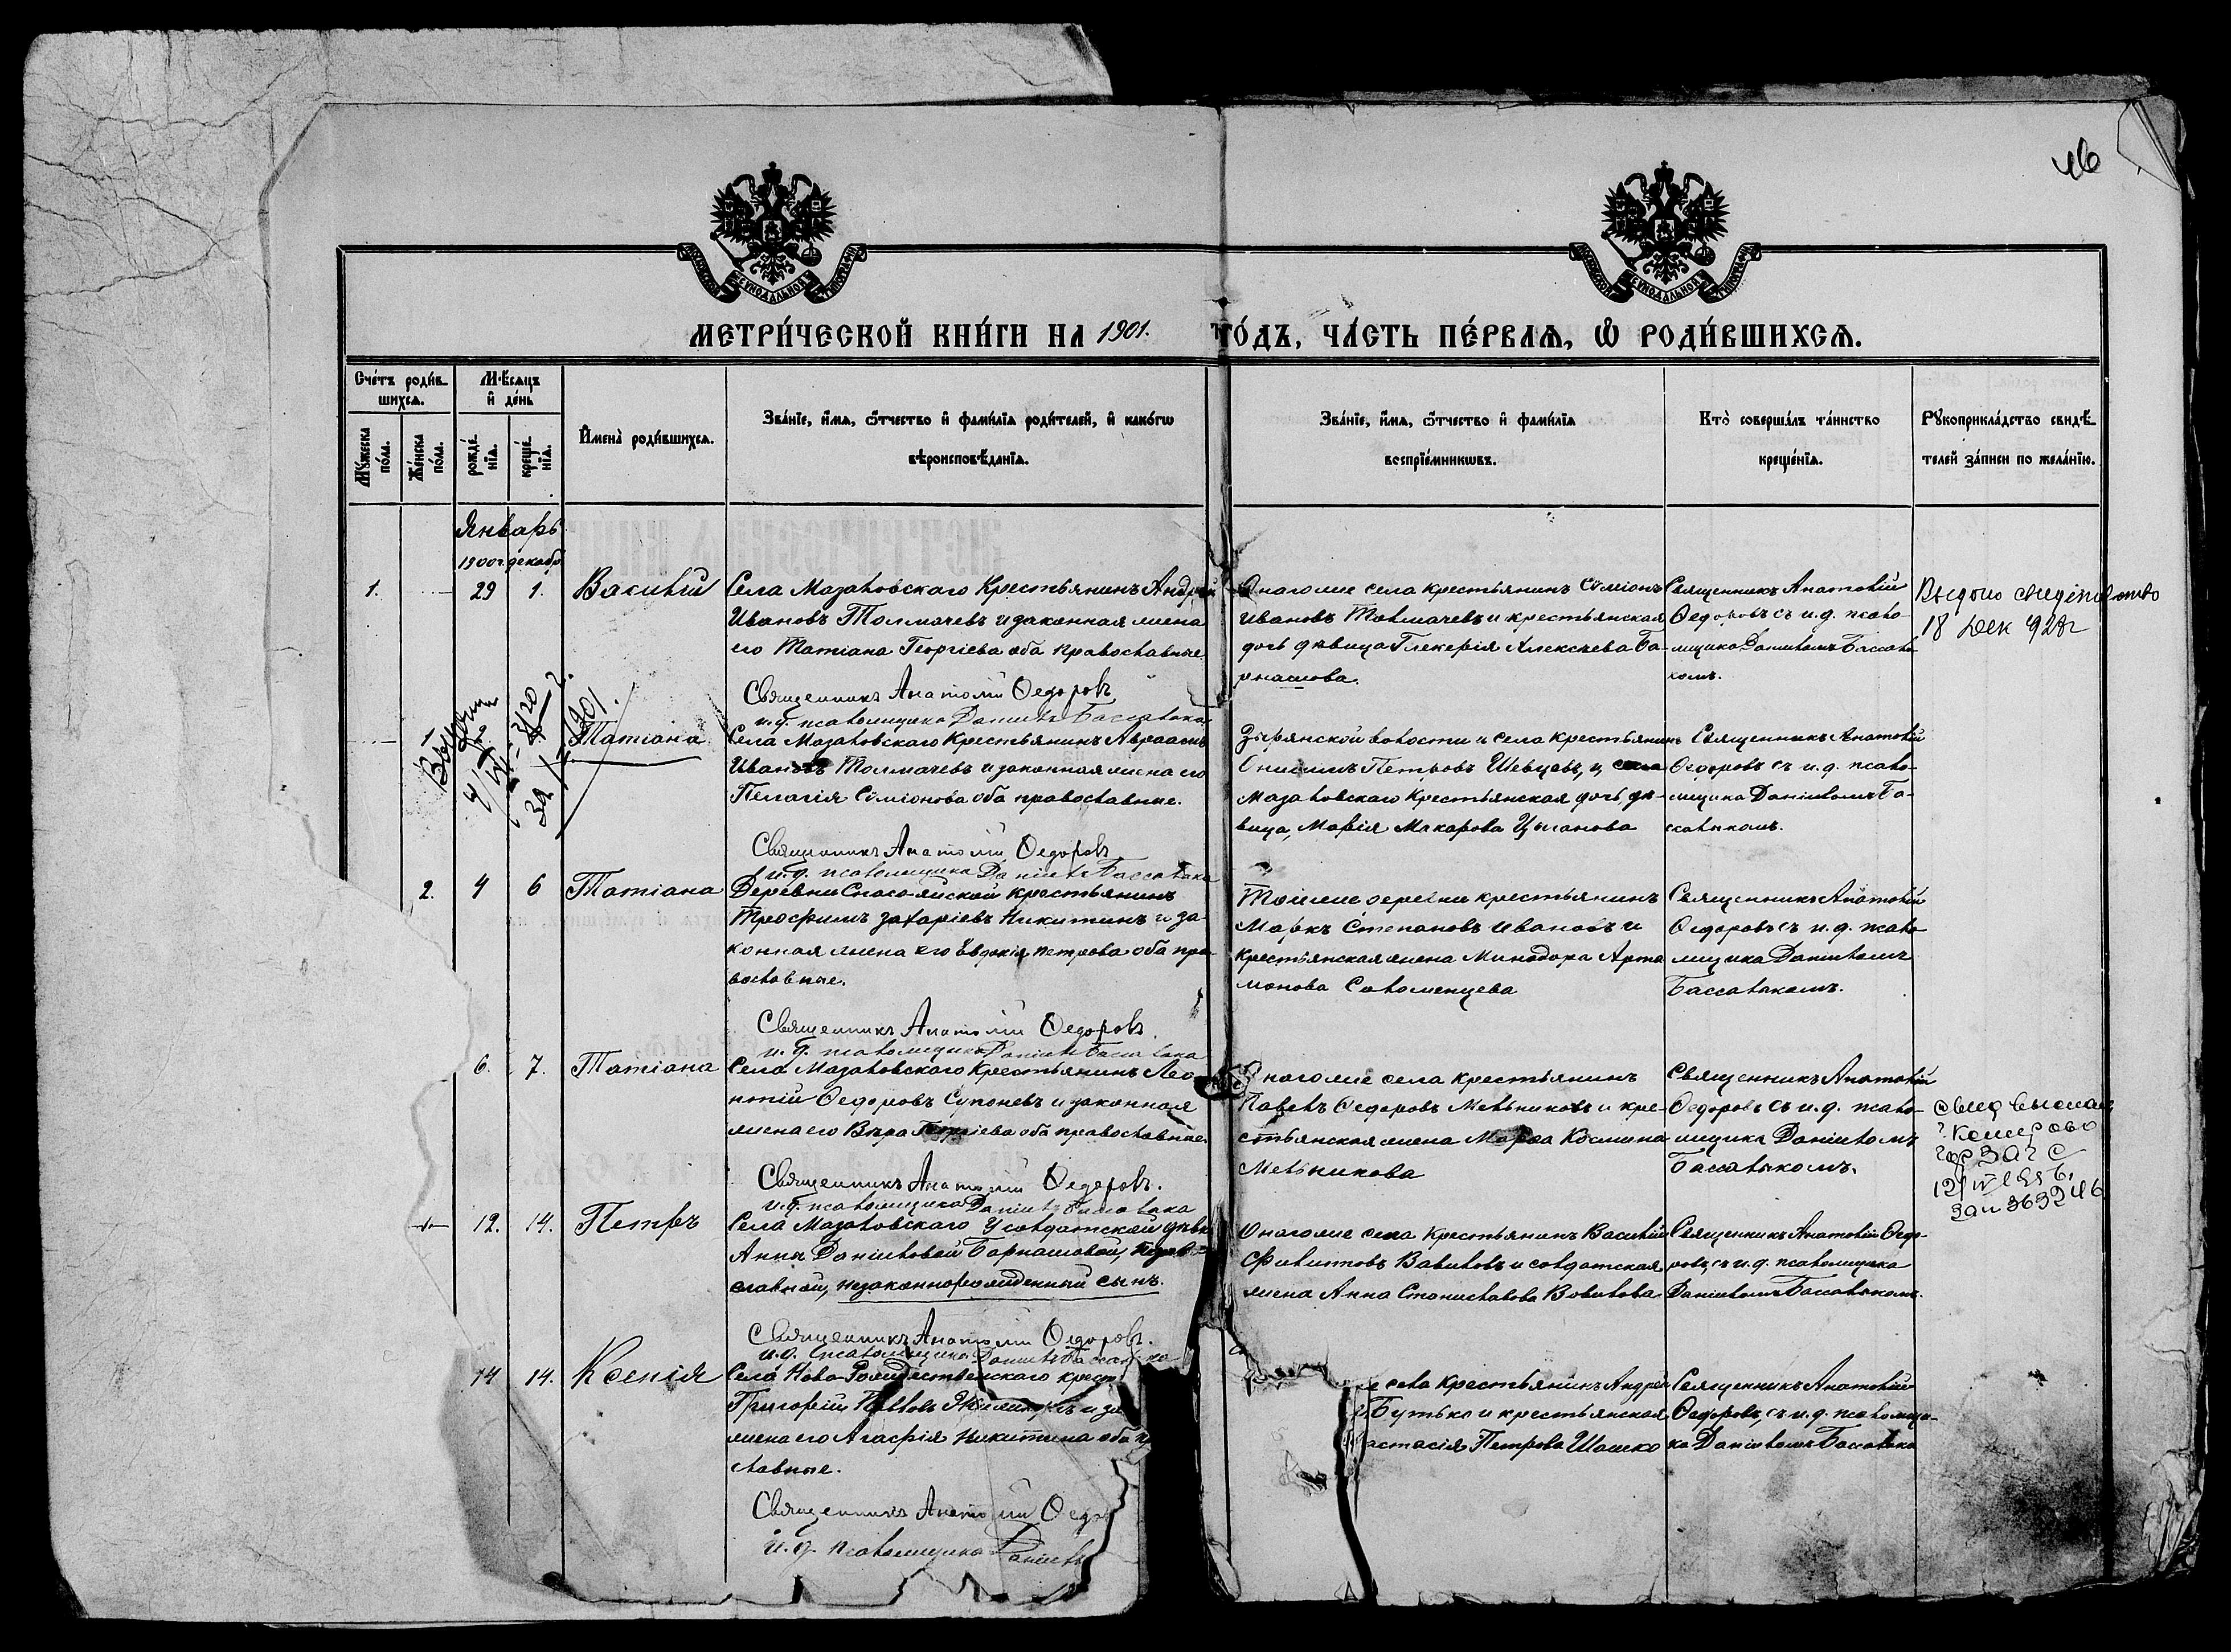 46
МЕТРИ́ЧЕСКОЙ КНИ́ГИ НА 1901. ГО́ДЪ, ЧА́СТЬ ПЕ́РВАѦ, Ѡ РОДИ́ВШИХСѦ.
Сче́тъ роди́в-
шихсѧ.
Мꙋ́жеска по́ла.
Же́нска по́ла.
Мѣ́сѧцъ и де́нь
рожде́-
нїѧ.
креще́-
нїѧ.
И҆мена̀ роди́вшихсѧ.
Зва́нїе, и҆́мѧ, ѻ҆́тчество и҆ фами́лїѧ роди́телей, и҆ како́гѡ
вѣроисповѣ́данїѧ.
Зва́нїе, и҆́мѧ, ѻ҆́тчество и҆ фами́лїѧ
воспрїе́мникѡвъ.
Кто̀ соверша́лъ та́инство
креще́нїѧ.
Рꙋкоприкла́дство свидѣ́-
телей за́писи по жела́нїю.
Январь
1900 г. декабр
1. 29 1. Василій
Села Мазаловскаго Крестьянинъ Андрей
Ивановъ Толмачевъ и законная жена
его Татіана Георгіева оба православные
Священникъ Анатолій Ѳедоровъ
и. д. псаломщика Даніилъ
Онагоже села крестьянинъ Сѵміонъ
Ивановъ Толмачевъ и крестьянская
дочь дѣвица Гликерія Алексѣева Ба-
рнашова.
Священникъ Анатолій
Ѳедоровъ съ и. д. псало-
мщика Даніиломъ
Выдано свидетельство
18 Дек 928г
1 Татіана
Села Мазаловскаго Крестьянинъ Авраамъ
Ивановъ Толмачевъ и законная жена его
Пелагія Сѵміонова оба православные.
Священникъ Анатолій Ѳедоровъ
и. д. псаломщика Даніилъ
Зырянской волости и села крестьянинъ
Онисимъ Петровъ Шевцовъ, и села
Мазаловскаго Крестьянская дочь, дѣ-
вица, Марія Макарова Цыганова
Священникъ Анатолій
Ѳедоровъ съ и. д. псало-
мщика Даніиломъ
2. 4 6 Татіана
Деревни Спасо-Яйской крестьянинъ
Трофимъ Захаріевъ Никитинъ и за-
конная жена его Евдокія Петрова оба пра-
вославные.
Священникъ Анатолій Ѳедоровъ.
и. д. псаломщика Даніилъ
Тойже деревни крестьянинъ
Маркъ Степановъ Ивановъ и
Крестьянская жена Минодора Арта-
монова Соломенцева
Священникъ Анатолій
Ѳедоровъ съ и. д. псало-
мщика Даніиломъ
6. 7. Татіана
Села Мазаловскаго Крестьянинъ Лео-
нтій Ѳедоровъ Супоневъ и законная
жена его Вѣра Георгіева оба православные.
Священникъ Анатолій Ѳедоровъ.
и. д. псаломщика Даніилъ
Онагоже села крестьянинъ
Павелъ Ѳедоровъ Мельниковъ и кре-
стьянская жена Марѳа Космина
Мельникова
Священникъ Анатолій
Ѳедоровъ съ и. д. псало-
мщика Даніиломъ
Кемерово
12. 14. Петръ
Села Мазаловскаго У солдатской дѣвки
Анны Даніиловой Барнашовой, право-
славной, незаконнорожденный сынъ.
Священникъ Анатолій Ѳедоровъ.
и. д. псаломщика Даніилъ
Онагоже села Крестьянинъ Василій
Филипповъ Вавиловъ и солдатская
жена Анна Станиславова Вовилова
Священникъ Анатолій Ѳедо-
ровъ, съ и. д. псаломщика
Даніиломъ
14 14. Ксенія
Села Ново-Рождественскаго крест
Григорій и за
жена его Агафія Никитина оба п
славные.
Священникъ Анатолій Ѳедо
и. д. псаломщика Даніилъ
е села Крестьянинъ Андрей
Бутько и крестьянская
астасія Петрова Шашко
Священникъ Анатолій
Ѳедоровъ, съ и. д. псаломщи-
ка Даніиломъ